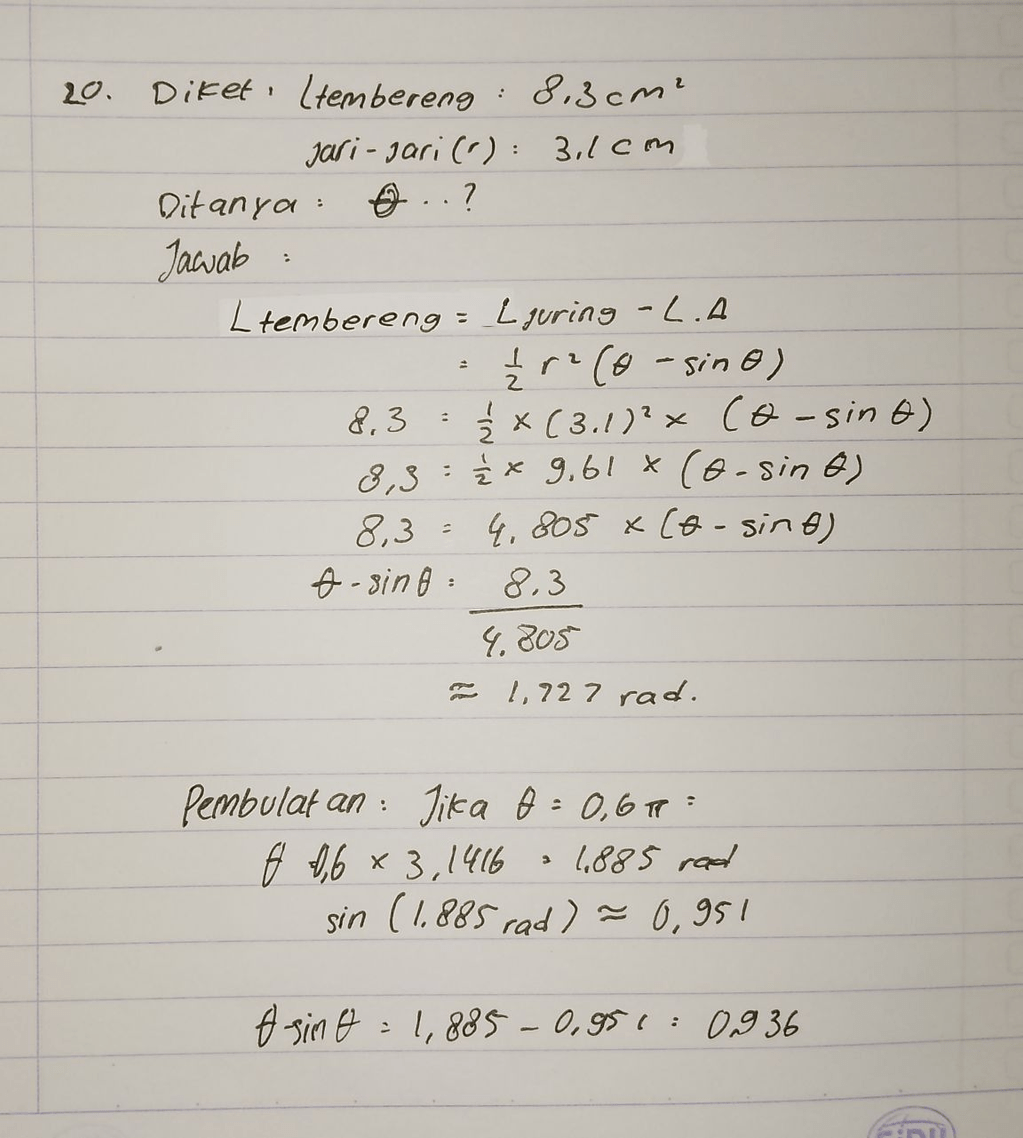 20. Diket : Ltembereng : 8,3 cm²
jari-jari (r) : 3,1 cm
Ditanya : θ ..?
Jawab :
Ltembereng = Ljuring - L.Δ
= 1/2 r² (θ - sin θ)
8,3 = 1/2 x (3.1)² x (θ - sin θ)
8,3 = 1/2 x 9,61 x (θ - sin θ)
8,3 = 4,805 x (θ - sin θ)
θ - sin θ = 8,3
4,805
≈ 1,727 rad.
Pembulatan : Jika θ = 0,6π =
θ 0,6 x 3,1416 = 1.885 rad
sin (1.885 rad) ≈ 0,951
θ-sin θ = 1,885 - 0,951 = 0,936